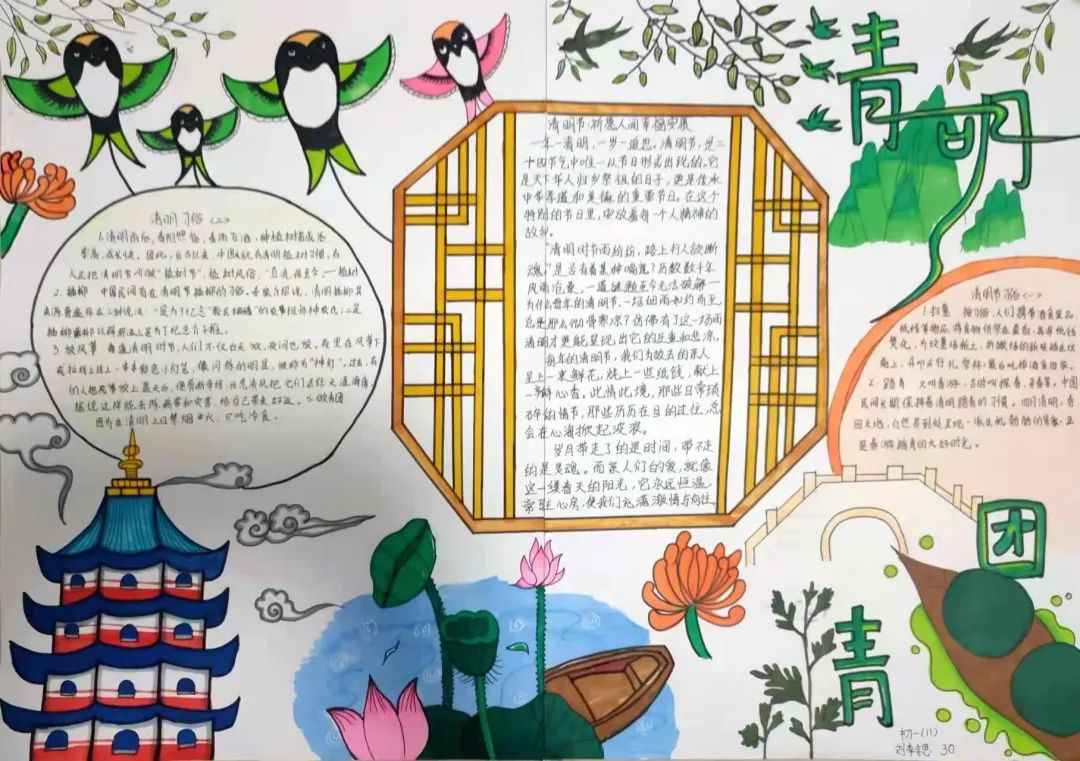 清明
清明节:祈愿人间幸福安康
一年一清明,一岁一追思。清明节,是二
十四节气中唯一以节日形式出现的。它
是天下华人归乡祭祖的日子,更是传承
中华孝道和美德的重要节日。在这个
特别的节日里,安放着每一个人精神的
故乡。
"清明时节雨纷纷,路上行人欲断
魂"是否有着某种喻冕?历数数千年
风雨沧桑,一道谜题至今无法破解一
为什么每年的清明节,一场细雨如约而至
总是那么彻骨寒凉?仿佛有了这一场雨
清明才更能呈现出它的庄重和悲凉。
每年的清明节,我们为故去的亲人
呈上一束鲜花,烧上一些纸钱,献上
一瓣心香。此情此境,那些日常琐
碎的情节,那些历历在目的过往,总
会在心海掀起波浪。
岁月带走了的是时间,带不走
的是灵魂。而亲人们的爱,就像
这一缕春天的阳光,它永远恒温,
常驻心房,使我们充满激情与向往
清明习俗(二)
1.清明前后,春阳照临,春雨飞洒,种植树苗成活
率高,成长快。因此,自古以来,中国就有清明植树习惯,有
人还把清明节叫做"植树节",植树风俗,
2.插柳 中国民间有在清明节插柳的习俗。专家介绍说,清明插柳其
是为了纪念
是为了纪念介子推。
3.放风筝 每逢清明时节,人们不仅白天放,夜间也放。夜里在风筝下
或拉线上挂上一串串彩色小灯笼,像闪烁的明星,被称为"神灯"。过去,有
的人把风筝放上蓝天后,便剪断牵线,任凭清风把它们送往天涯海角,
据说这样能去除病害和灾害,给自己带来好运。5.做青团
因为在清明上日禁烟止火,只吃冷食。
清明节习俗(一)
1.扫墓 按习俗,人们携带酒食果品,
纸钱等物品,将食物供祭在墓前,再将纸钱
焚化,为坟墓培新土,折嫩绿的新枝插在坟
叩头行礼祭拜,最后吃掉酒食回家。
2.踏青 又叫春游,古时叫探春、寻春等。中国
民间长期保持着清明踏青的习惯。四月清明,春
回大地,自然界到处呈现一派生机勃勃的景象,正
是春游踏青的大好时光。
青
团
初一(11)
30